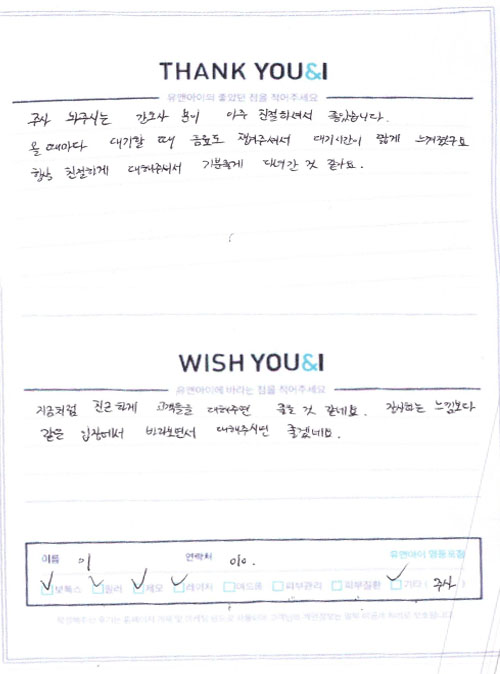 THANK YOU&I
유앤아이의 좋았던 점을 적어주세요
주사 놔주시는 간호사 분이 아주 친절하셔서 좋았습니다.
올 때마다 대기할 때 음료도 챙겨주셔서 대기시간이 짧게 느껴졌구요
항상 친절하게 대해주셔서 기분좋게 다녀간 것 같아요.
WISH YOU&I
유앤아이에 바라는 점을 적어주세요
지금처럼 친근하게 고객들을 대해주면 좋을 것 같네요. 느낌보다
같은 입장에서 바라보면서 대해주시면 좋겠네요.
이름 이 연락처 010. 유앤아이 영등포점
보톡스 필러 제모 레이저 여드름 피부관리 피부질환 기타 ( 주사 )